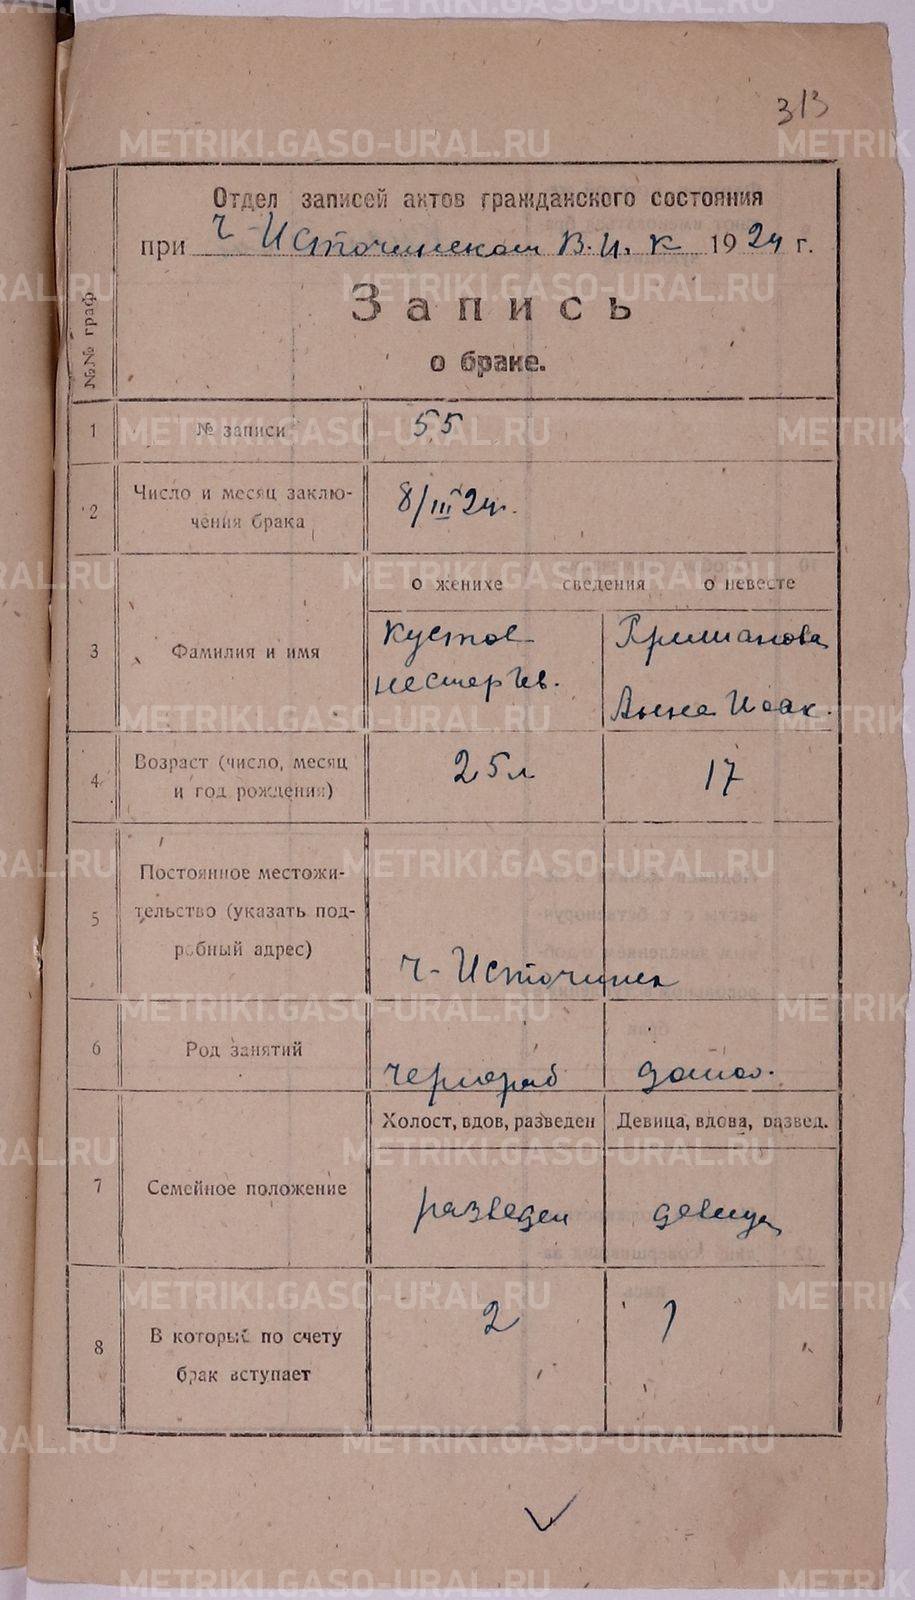 313
Отдел записей актов гражданского состояния
при Ч-Источинском В.И.К 1924 г.
№№ граф
Запись
о браке.
1 № записи 55
2 Число и месяц заклю-
чения брака 8/III 24г.
о женихе сведения о невесте
3 Фамилия и имя
Кустов
Нестеръев.
Гришанова
Анна Исак.
4 Возраст (число, месяц
и год рождения) 25л 17
5 Постоянное местожи-
тельство (указать под-
робный адрес) Ч-Источинск
6 Род занятий чернораб домаш.
Холост, вдов, разведен Девица, вдова, развед.
7 Семейное положение разведен девица
8 В который по счету
брак вступает 2 1
METRIKI.GASO-URAL.RU